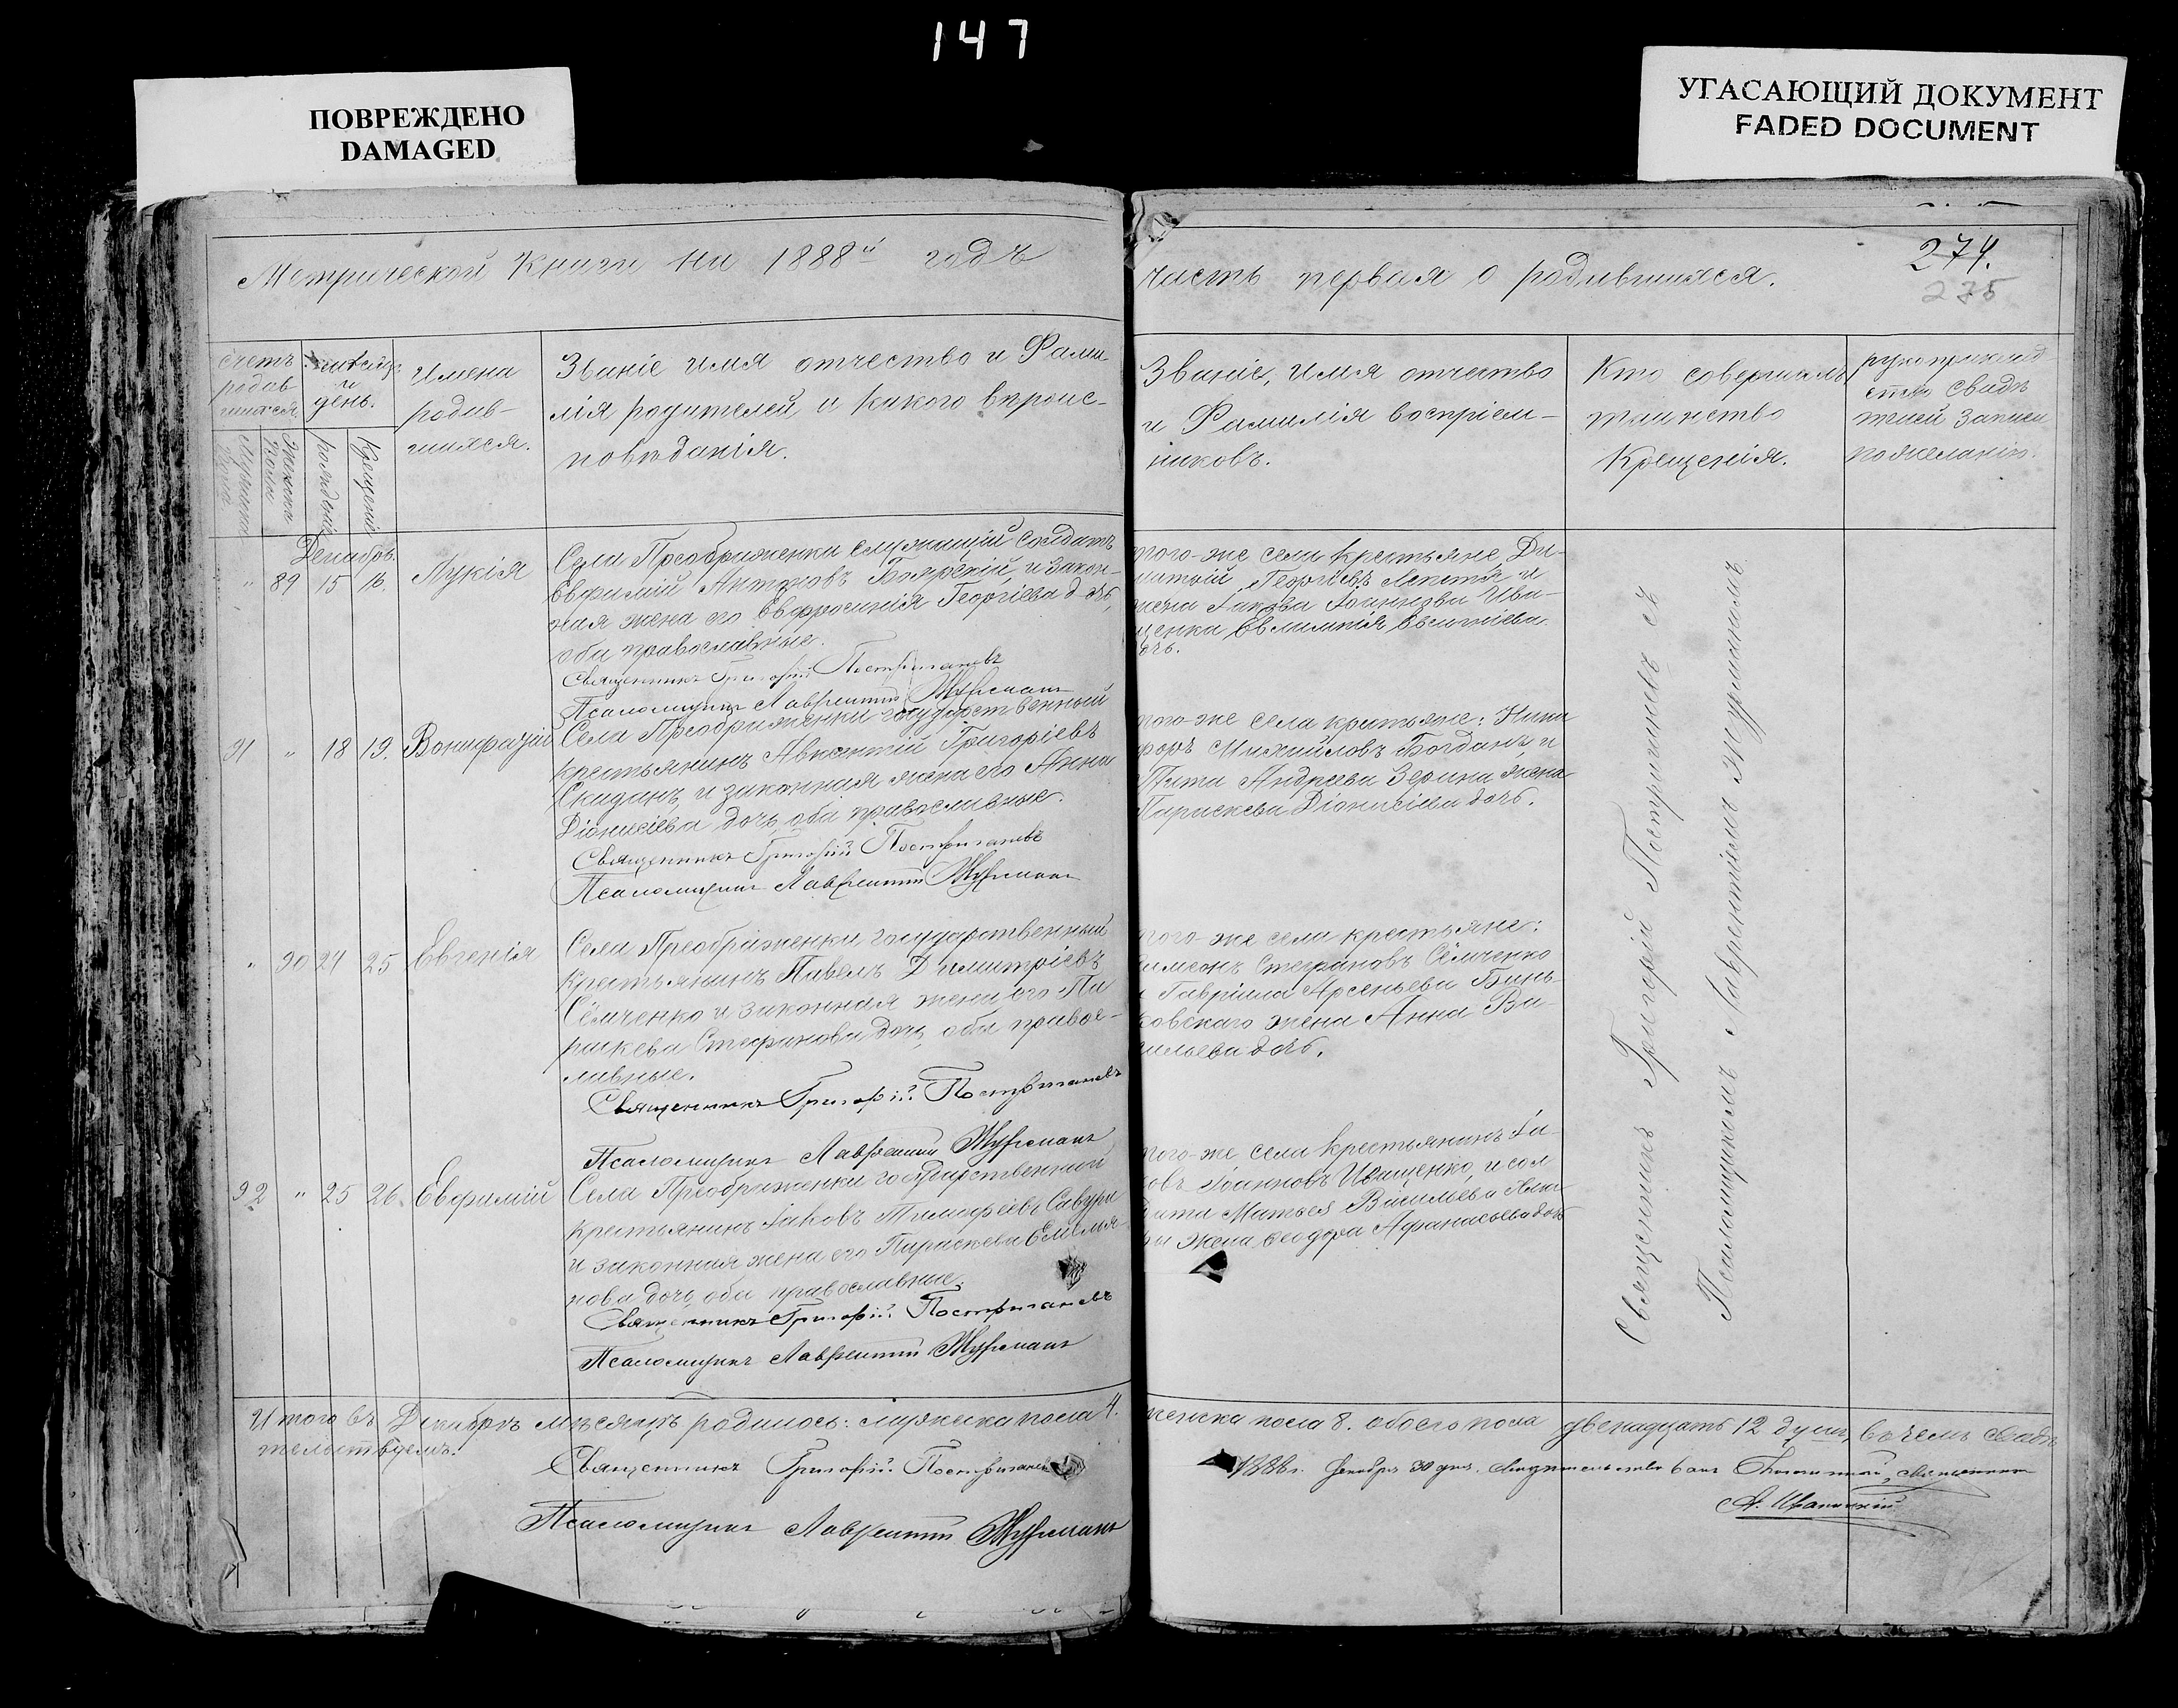 147
ПОВРЕЖДЕНО
DAMAGED
УГАСАЮЩИЙ ДОКУМЕНТ
FADED DOCUMENT
Метрической Книги на 1888й годъ
часть первая о родившихся.
274.
275
счетъ родив шихся.
и день.
Имена родив- шихся.
Званіе имя отчество и Фами
лія родителей, и какого вѣроис-
повѣданія.
Званіе, имя отчество
и Фамилія воспріем-
никовъ.
Кто совершалъ
таинство
Крещенія.
рукоприклад
ство свидѣ
записи
по желанію.
Мужеска пола
Женска пола
рожденія
Крещенія
Декабрь.
" 89 15 16. Лукія
Села Преображенки служащій солдатъ
Евфимій Антоновъ Боярскій, и закон-
ная жена его Евфросинія Георгіева дочь,
оба православные.
Священникъ Григорій Постригановъ
Псаломщикъ Лаврентій Журманъ
того-же села крестьяне, Ди-
митрій Георгіевъ и
жена Іакова Іоаннова Ива-
щенка Евлампія
дочь.
91 " 18 19. Вонифатій
Села Преображенки государственный
крестьянинъ Авксентій Григоріевъ
Скиданъ, и законная жена его Анна
Діонисіева дочь, оба православные.
Священникъ Григорій Постригановъ
Псаломщикъ Лаврентій Журманъ
того-же села крестьяне: Ники
форъ Михайловъ Богданъ, и
Тита Андреева Зерина жена
Параскева Діонисіева дочь.
" 90 24 25 Евгенія
Села Преображенки, государственный
крестьянинъ Павелъ Димитріевъ
Сёмченко и законная жена его Па
раскева Стефанова дочь, оба правос-
лавные.
Священникъ Григорій Постригановъ
Псаломщикъ Лаврентій Журманъ
того-же села крестьяне:
Симеонъ Стефановъ Сёмченко
и Гавріила Арсеньева Бинь-
ковскаго жена Анна Ва-
сильева дочь.
92 " 25 26. Евфимій
Села Преображенки государственный
крестьянинъ Іаковъ Тимофеевъ Савура
и законная жена его Параскева Емелья-
нова дочь, оба православные.
Священникъ Григорій Постригановъ
Псаломщикъ Лаврентій Журманъ
того-же села крестьянинъ Іа-
ковъ Іоанновъ Иващенко, и сол
дата Матѳея Васильева
жена Ѳеодора Афанасьева дочь
Священникъ Григорій Постригановъ съ
Псаломщикомъ Лаврентіемъ Журманомъ
Итого въ Декабрѣ мѣсяцѣ родилось: мужеска пола 4.
женска пола 8. обоего пола двенадцать 12 душъ, въ чемъ свидѣ
тельствуемъ:
Священникъ Григорій Постригановъ
Псаломщикъ Лаврентій Журманъ
1888г. Декабря 30 дня.